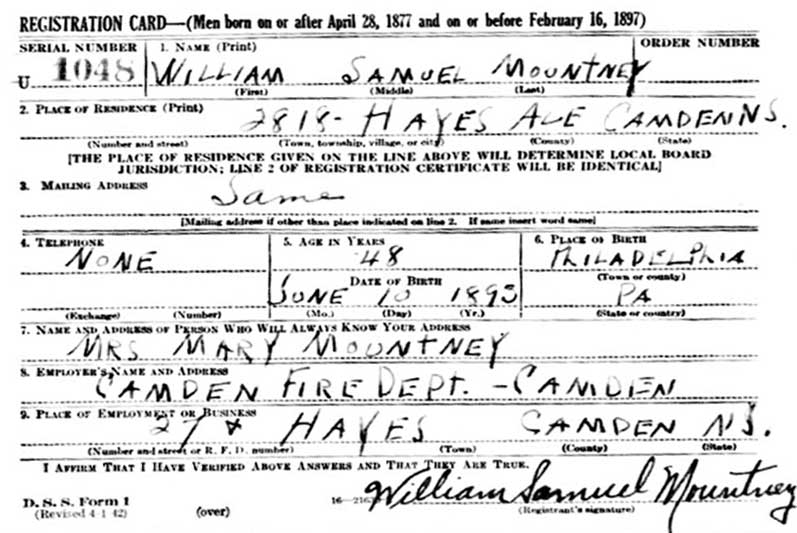 REGISTRATION CARD—(Men born on or after April 28, 1877 and on or before February 16, 1897)
SERIAL NUMBER 1. NAME (Print) ORDER NUMBER
U 1048 WILLIAM SAMUEL MOUNTNEY
(First) (Middle) (Last)
2. PLACE OF RESIDENCE (Print)
2818- HAYES AVE CAMDEN NJ.
(Number and street) (Town, township, village, or city) (County) (State)
[THE PLACE OF RESIDENCE GIVEN ON THE LINE ABOVE WILL DETERMINE LOCAL BOARD
JURISDICTION; LINE 2 OF REGISTRATION CERTIFICATE WILL BE IDENTICAL]
3. MAILING ADDRESS
Same
[Mailing address if other than place indicated on line 2. If same insert word same]
4. TELEPHONE 5. AGE IN YEARS 6. PLACE OF BIRTH
NONE 48 PHILADELPHIA
DATE OF BIRTH (Town or county)
JUNE 10 1893 PA
(Exchange) (Number) (Mo.) (Day) (Yr.) (State or country)
7. NAME AND ADDRESS OF PERSON WHO WILL ALWAYS KNOW YOUR ADDRESS
MRS MARY MOUNTNEY
8. EMPLOYER'S NAME AND ADDRESS
CAMDEN FIRE DEPT. - CAMDEN
9. PLACE OF EMPLOYMENT OR BUSINESS
27 + HAYES CAMDEN NJ.
(Number and street or R. F. D. number) (Town) (County) (State)
I AFFIRM THAT I HAVE VERIFIED ABOVE ANSWERS AND THAT THEY ARE TRUE.
D. S. S. Form 1 William Samuel Mountney
(Revised 4-1-42) (over) (Registrant's signature)